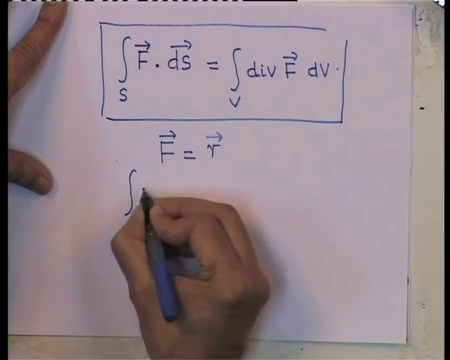 ∫_S F⃗ · dS⃗ = ∫_V div F⃗ dV.
F⃗ = r⃗
∫